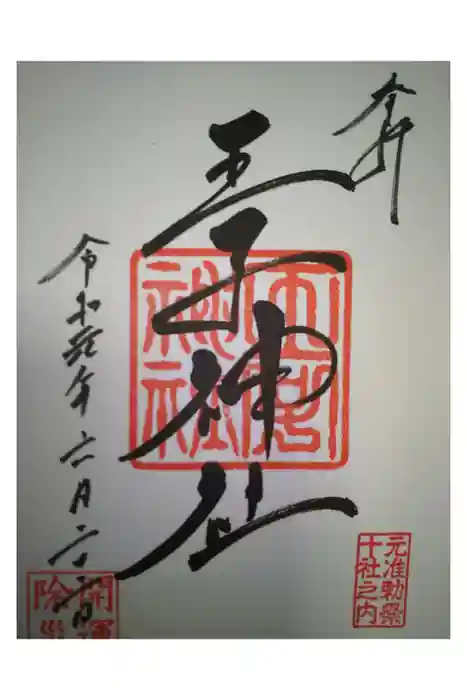 奉拝
王子神社
令和年六月二十日
元准勅祭
十社之内
開運
除災